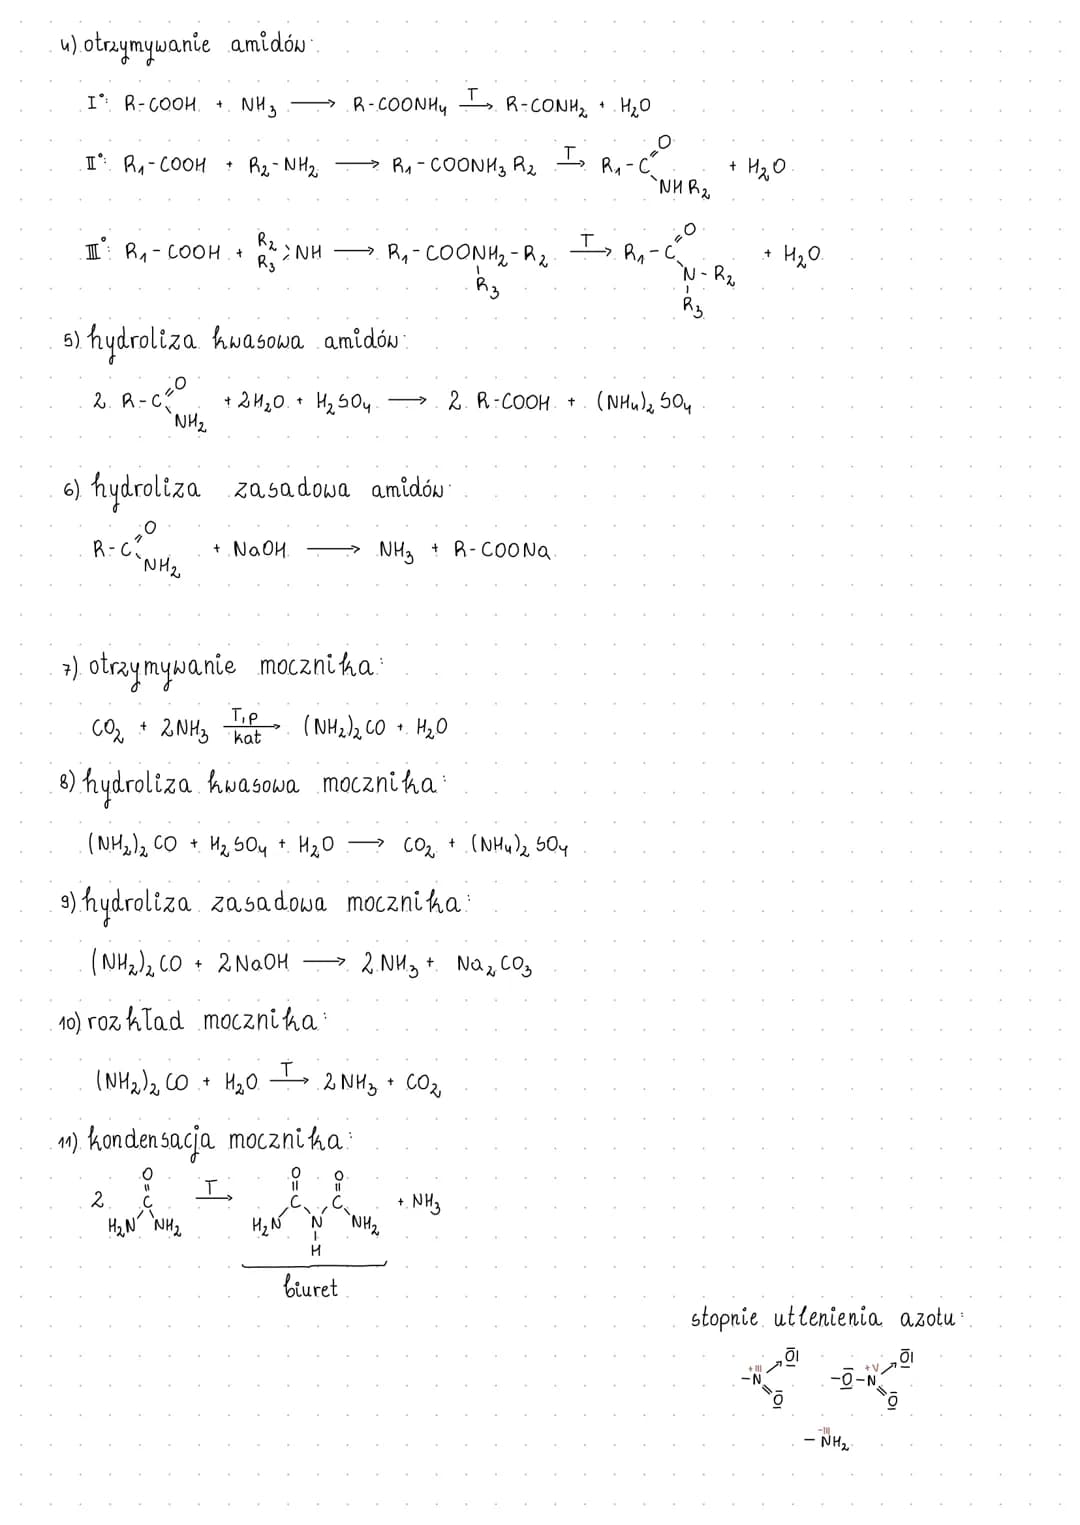 4) otrzymywanie amidów:
I°: R-COOH + NH₃ ⟶ R-COONH₄ —T→ R-CONH₂ + H₂O
II°: R₁-COOH + R₂-NH₂ ⟶ R₁-COONH₃R₂ —T→ R₁-C(=O)NHR₂ + H₂O
III°: R₁-COOH + R₂R₃>NH ⟶ R₁-COONH₂(-R₃)-R₂ —T→ R₁-C(=O)N(-R₃)-R₂ + H₂O
5) hydroliza kwasowa amidów:
2 R-C(=O)NH₂ + 2H₂O + H₂SO₄ ⟶ 2 R-COOH + (NH₄)₂SO₄
6) hydroliza zasadowa amidów:
R-C(=O)NH₂ + NaOH ⟶ NH₃ + R-COONa
7) otrzymywanie mocznika:
CO₂ + 2NH₃ —T,p kat→ (NH₂)₂CO + H₂O
8) hydroliza kwasowa mocznika:
(NH₂)₂CO + H₂SO₄ + H₂O ⟶ CO₂ + (NH₄)₂SO₄
9) hydroliza zasadowa mocznika:
(NH₂)₂CO + 2NaOH ⟶ 2NH₃ + Na₂CO₃
10) rozkład mocznika:
(NH₂)₂CO + H₂O —T→ 2NH₃ + CO₂
11) kondensacja mocznika:
2 H₂N-C(=O)-NH₂ —T→ H₂N-C(=O)-N(-H)-C(=O)-NH₂ + NH₃
biuret
stopnie utlenienia azotu:
+III +V
-N→O =O -O-N→O =O
-III
-NH₂